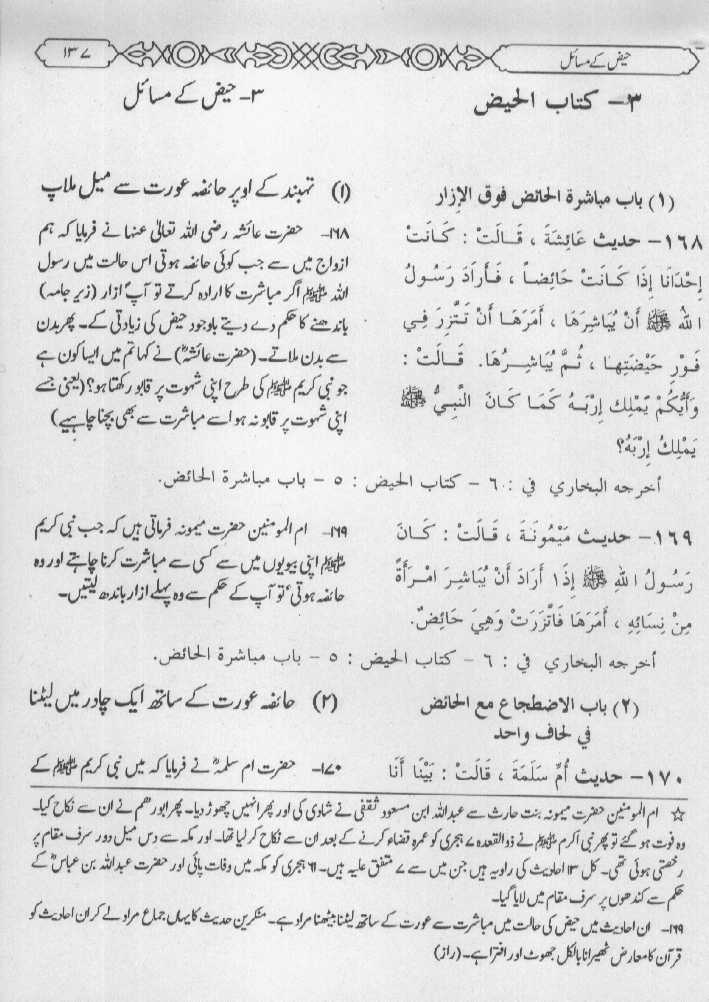 حیض کے مسائل
۱۳۷
۳- کتاب الحیض
۳- حیض کے مسائل
(۱) باب مباشرة الحائض فوق الإزار
۱۶۸- حديث عَائِشَةَ ، قَالَتْ : كَانَتْ
إِحْدَانَا إِذَا كَانَتْ حَائِضاً ، فَأَرَادَ رَسُولُ
اللهِ ﷺ أَنْ يُبَاشِرَهَا ، أَمَرَهَا أَنْ تَتَّزِرَ فِي
فَوْرِ حَيْضَتِهَا ، ثُمَّ يُبَاشِرُهَا. قَالَتْ :
وَأَيُّكُمْ يَمْلِكُ إِرْبَهُ كَمَا كَانَ النَّبِيُّ ﷺ
يَمْلِكُ إِرْبَهُ؟
(۱) تہبند کے اوپر حائضہ عورت سے میل ملاپ
۱۶۸- حضرت عائشہ رضی اللہ تعالیٰ عنہا نے فرمایا کہ ہم
ازواج میں سے جب کوئی حائضہ ہوتی اس حالت میں رسول
اللہ ﷺ اگر مباشرت کا ارادہ کرتے تو آپؐ ازار (زیر جامہ)
باندھنے کا حکم دے دیتے باوجود حیض کی زیادتی کے۔ پھر بدن
سے بدن ملاتے۔ (حضرت عائشہؓ) نے کہا تم میں ایسا کون ہے
جو نبی کریم ﷺ کی طرح اپنی شہوت پر قابو رکھتا ہو؟ (یعنی جسے
اپنی شہوت پر قابو نہ ہو اسے مباشرت سے بھی بچنا چاہیے)
أخرجه البخاري في : ٦ - كتاب الحيض : ٥ - باب مباشرة الحائض.
۱۶۹- حديث مَيْمُونَةَ ، قَالَتْ : كَانَ
رَسُولُ اللهِ ﷺ إِذَا أَرَادَ أَنْ يُبَاشِرَ امْرَأَةً
مِنْ نِسَائِهِ ، أَمَرَهَا فَاتَّزَرَتْ وَهِيَ حَائِضٌ.
۱۶۹- ام المومنین حضرت میمونہ فرماتی ہیں کہ جب نبی کریم
ﷺ اپنی بیویوں میں سے کسی سے مباشرت کرنا چاہتے اور وہ
حائضہ ہوتی‘ تو آپ کے حکم سے وہ پہلے ازار باندھ لیتیں۔
أخرجه البخاري في : ٦ - كتاب الحيض : ٥ - باب مباشرة الحائض.
(۲) باب الاضطجاع مع الحائض
في لحاف واحد
(۲) حائضہ عورت کے ساتھ ایک چادر میں لیٹنا
۱۷۰- حديث أُمِّ سَلَمَةَ ، قَالَتْ : بَيْنَا أَنَا
۱۷۰- حضرت ام سلمہؓ نے فرمایا کہ میں نبی کریم ﷺ کے
☆ ام المومنین حضرت میمونہ بنت حارث سے عبداللہ ابن مسعود ثقفی نے شادی کی اور پھر انہیں چھوڑ دیا۔ پھر ابورھم نے ان سے نکاح کیا۔
وہ فوت ہو گئے تو پھر نبی اکرم ﷺ نے ذوالقعدہ ۷ ہجری کو عمرہ قضاء کرنے کے بعد ان سے نکاح کر لیا تھا۔ اور مکہ سے دس میل دور سرف مقام پر
رخصتی ہوئی تھی۔ کل ۱۳ احادیث کی راویہ ہیں جن میں سے ۷ متفق علیہ ہیں۔ ۶۱ ہجری کو مکہ میں وفات پائی اور حضرت عبداللہ بن عباسؓ کے
حکم سے کندھوں پر سرف مقام میں لایا گیا۔
۱۶۹- ان احادیث میں حیض کی حالت میں مباشرت سے عورت کے ساتھ لیٹنا بیٹھنا مراد ہے۔ منکرین حدیث کا یہاں جماع مراد لے کر ان احادیث کو
قرآن کا معارض ٹھیرانا بالکل جھوٹ اور افترا ہے۔ (راز)